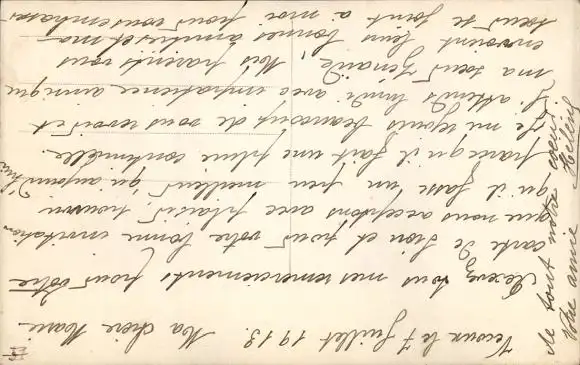 Vecoux le 7 Juillet 1913.
Ma chère Marie
Recevez tous mes remerciements pour votre
carte de Lion et pour votre bonne invitation
que nous acceptons avec plaisir, pourvu
qu'il fasse un peu meilleur qu'aujourd'hui
parce qu'il fait une pluie continuelle.
Je me rejouis beaucoup de vous revoir et
j'attends lundi avec impatience ainsi que
ma soeur Jenaide, Mes parents vous
envoient leurs bonnes amitiés et ma
soeur se joint à moi pour vous embrasser
de tout notre coeur.
Votre amie Hélène